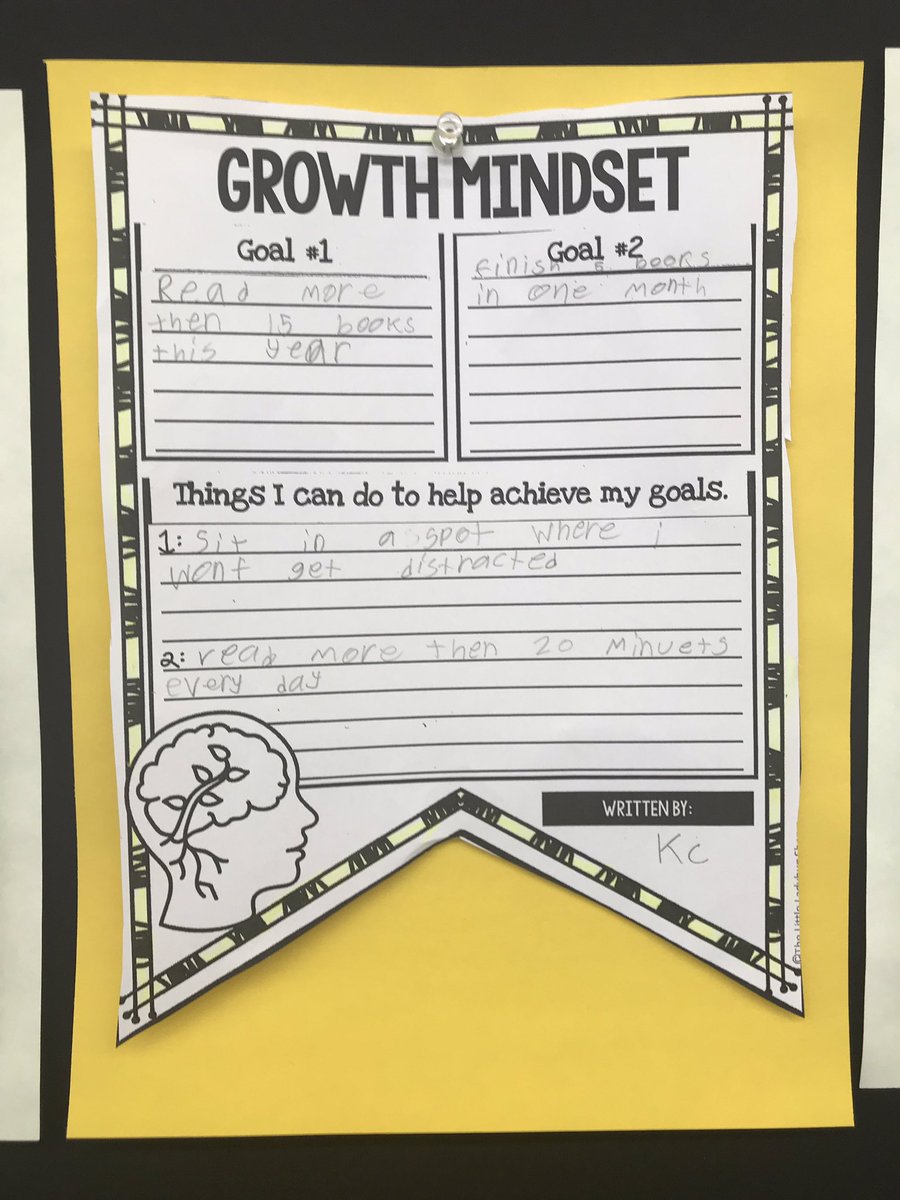 GROWTH MINDSET
Goal #1
Read more
then 15 books
this year
Goal #2
Finish 5 books
in one month
Things I can do to help achieve my goals.
1: Sit in a spot where i
wont get distracted
2: read more then 20 Minuets
every day
WRITTEN BY:
Kc
©The Little Ladybug